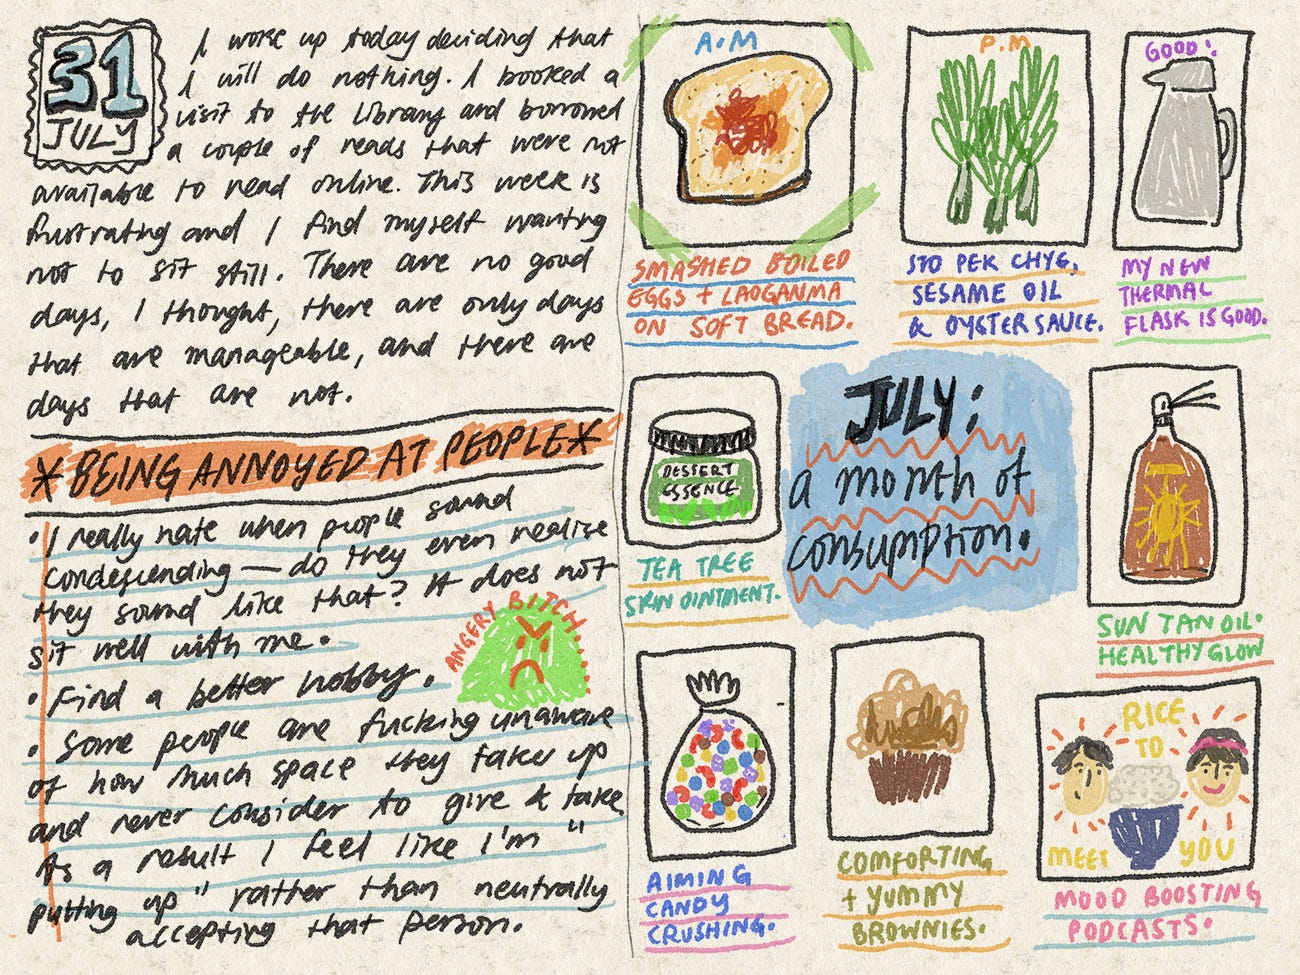 31
JULY
I woke up today deciding that
I will do nothing. I booked a
visit to the Library and borrowed
a couple of reads that were not
available to read online. This week is
frustrating and I find myself wanting
not to sit still. There are no good
days, I thought, there are only days
that are manageable, and there are
days that are not.
*BEING ANNOYED AT PEOPLE*
• I really hate when people sound
condescending — do they even realise
they sound like that? It does not
sit well with me.
• Find a better hobby.
ANGERY BITCH....
• Some people are fucking unaware
of how much space they take up
and never consider to give & take.
As a result I feel like I'm "
putting up" rather than neutrally
accepting that person.
A.M
SMASHED BOILED
EGGS + LAOGANMA
ON SOFT BREAD.
P.M
SIO PEK CHYE,
SESAME OIL
& OYSTER SAUCE.
GOOD!
MY NEW
THERMAL
FLASK IS GOOD.
DESSERT
ESSENCE
TEA TREE
SKIN OINTMENT.
JULY:
a month of
consumption.
SUN TAN OIL.
HEALTHY GLOW
AIMING
CANDY
CRUSHING.
COMFORTING
+ YUMMY
BROWNIES.
RICE
TO
MEET YOU
MOOD BOOSTING
PODCASTS.